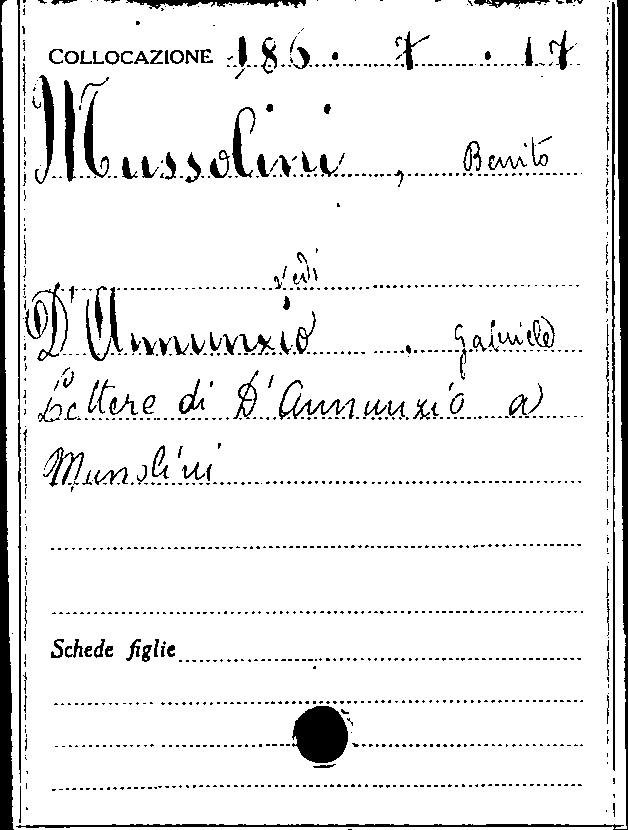 COLLOCAZIONE 186. 7. 17
Mussolini, Benito
vedi
D'Annunzio. Gabriele
Lettere di D'Annunzio a
Mussolini
Schede figlie